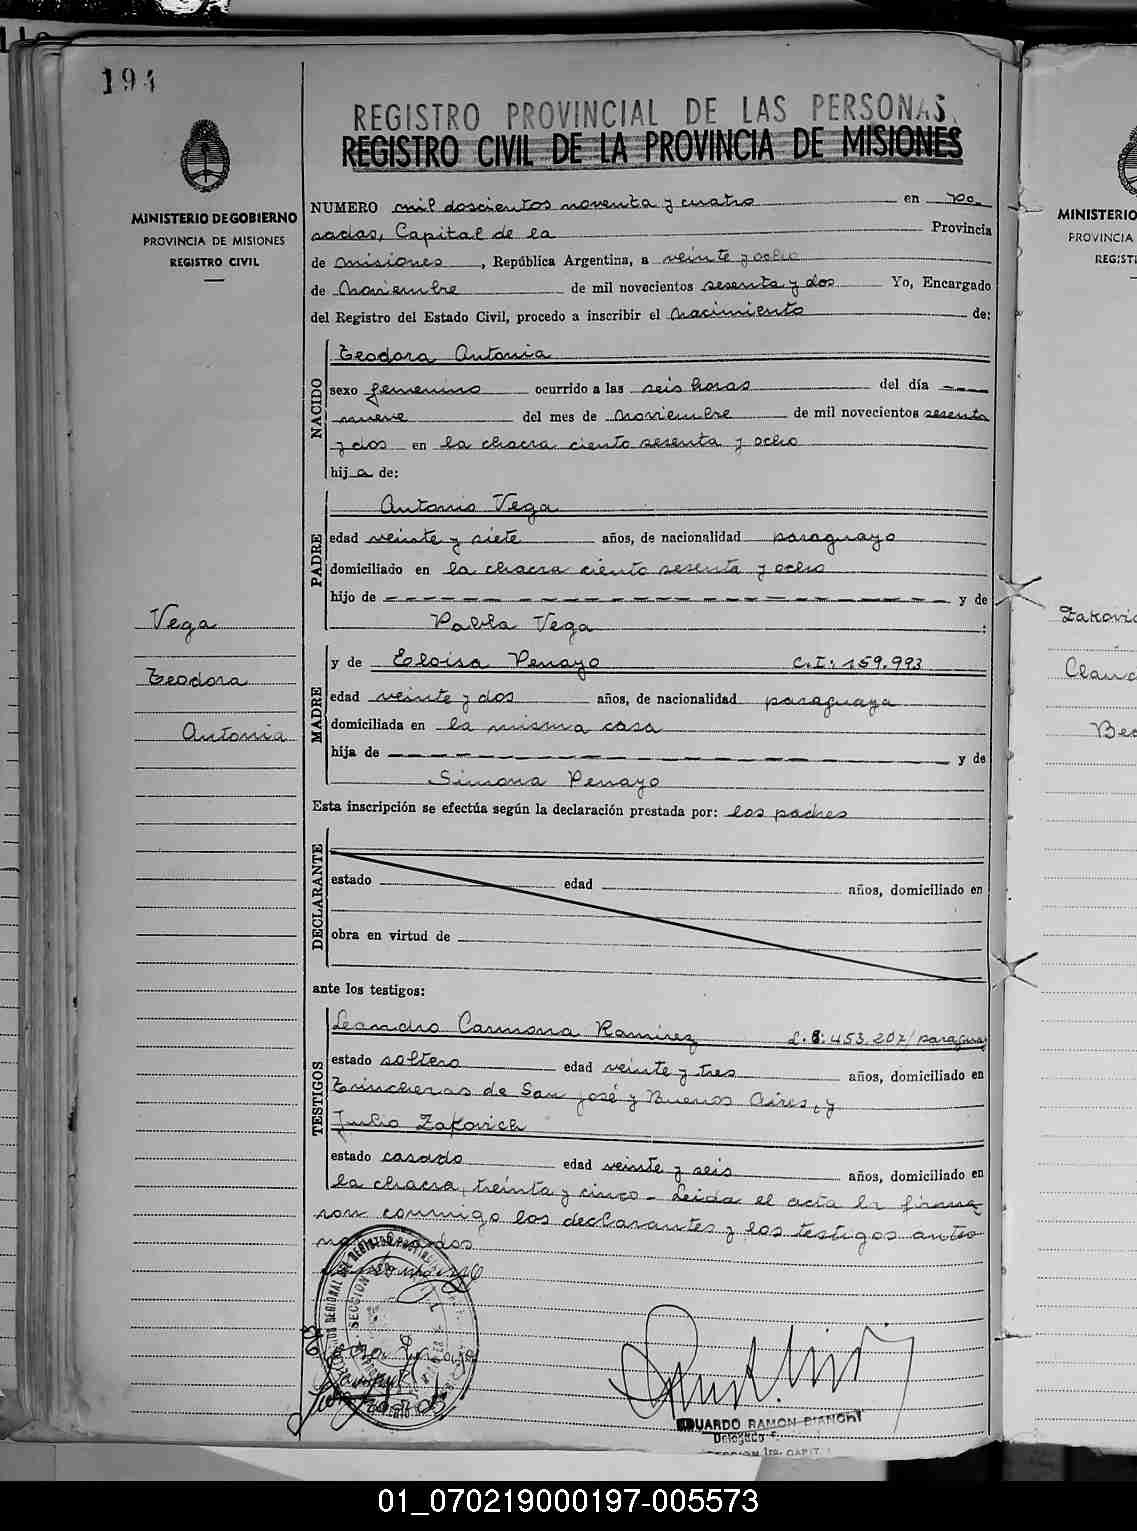 194
REGISTRO PROVINCIAL DE LAS PERSONAS.
REGISTRO CIVIL DE LA PROVINCIA DE MISIONES
MINISTERIO DE GOBIERNO
PROVINCIA DE MISIONES
REGISTRO CIVIL
NUMERO mil doscientos noventa y cuatro en Po-
sadas, Capital de la Provincia
de Misiones, República Argentina, a veinte y ocho
de Noviembre de mil novecientos sesenta y dos Yo, Encargado
del Registro del Estado Civil, procedo a inscribir el nacimiento de:
NACIDO
Teodora Antonia
sexo femenino ocurrido a las seis horas del día
nueve del mes de Noviembre de mil novecientos sesenta
y dos en la chacra ciento sesenta y ocho
hija de:
PADRE
Antonio Vega
edad veinte y siete años, de nacionalidad paraguayo
domiciliado en la chacra ciento sesenta y ocho
hijo de - - - - - - - - - - - - - - - - y de
Pabla Vega :
Vega
Teodora
Antonia
MADRE
y de Eloisa Penayo C.I: 159.993
edad veinte y dos años, de nacionalidad paraguaya
domiciliada en la misma casa
hija de - - - - - - - - - - - - - - - - y de
Simona Penayo
Esta inscripción se efectúa según la declaración prestada por: los padres
DECLARANTE
estado edad años, domiciliado en
obra en virtud de
ante los testigos:
TESTIGOS
Leandro Carmona Ramirez 453.207/paraguay
estado soltero edad veinte y tres años, domiciliado en
Trincheras de San José y Buenos Aires, y
Julio Zakovich
estado casado edad veinte y seis años, domiciliado en
la chacra, treinta y cinco - Leida el acta la firma-
ron conmigo los declarantes y los testigos antes
EDUARDO RAMON BIANCHI
Delegado
SECCION 1ra. CAPIT.
MINISTERIO
PROVINCIA
REGISTI
Zakovic
Claud
Be
01_070219000197-005573